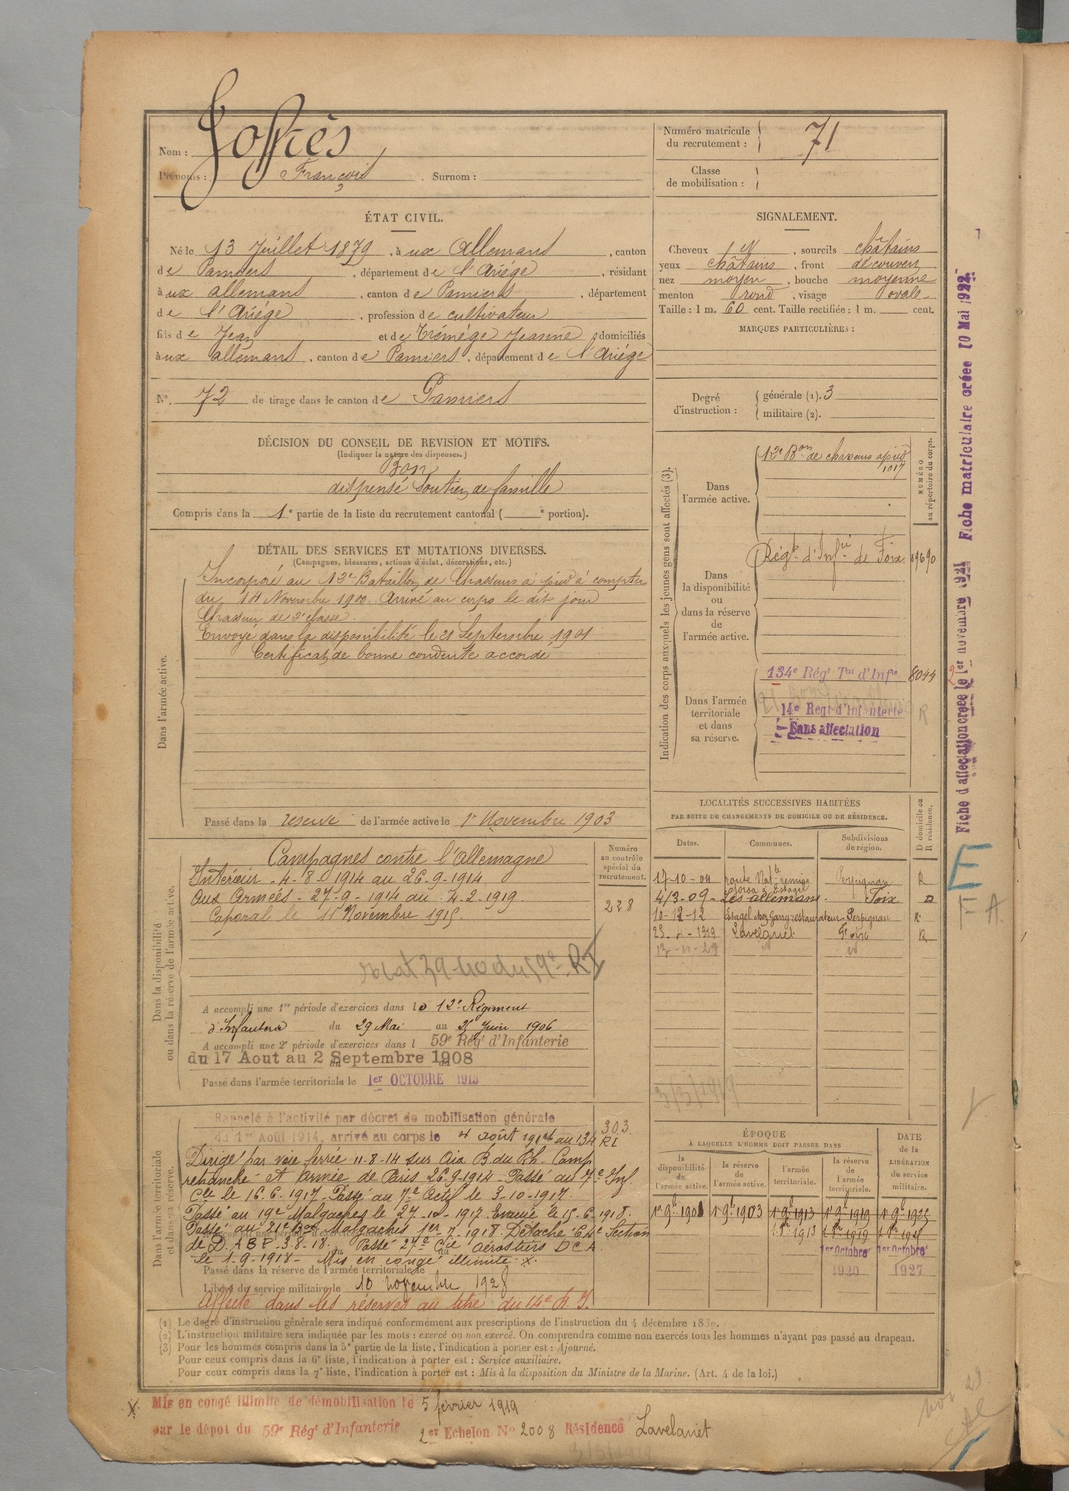 Nom : Joffrès
Prénoms : François . Surnom :
Numéro matricule du recrutement : 71
Classe de mobilisation :
ÉTAT CIVIL.
Né le 13 Juillet 1879, à ux Allemans, canton
de Pamiers, département de l'Ariége, résidant
à ux allemans, canton de Pamiers, département
de l'Ariége, profession de cultivateur
fils de Jean et de Trémége Jeanne domiciliés
à ux allemans, canton de Pamiers, département de l'Ariége
N° 72 de tirage dans le canton de Pamiers
SIGNALEMENT.
Cheveux , sourcils châtains
yeux châtains, front découvert
nez moyen, bouche moyenne
menton rond, visage ovale
Taille : 1 m. 60 cent. Taille rectifiée : 1 m. cent.
MARQUES PARTICULIÈRES :
Degré d'instruction :
générale (1). 3
militaire (2).
DÉCISION DU CONSEIL DE REVISION ET MOTIFS.
(Indiquer la nature des dispenses.)
Bon
dispensé Soutien de famille
Compris dans la 1e partie de la liste du recrutement cantonal ( e portion).
DÉTAIL DES SERVICES ET MUTATIONS DIVERSES.
(Campagnes, blessures, actions d'éclat, décorations, etc.)
Dans l'armée active.
Incorporé au 12e Bataillon de Chasseurs à pied à compter
du 14 Novembre 1900. Arrivé au corps le dit jour
Chasseur de 2e classe.
Envoyé dans la disponibilité le 21 Septembre 1901
Certificat de bonne conduite accordé
Passé dans la reserve de l'armée active le 1er Novembre 1903
Indication des corps auxquels les jeunes gens sont affectés (3).
NUMÉRO au répertoire du corps.
Dans l'armée active.
12e Bon de chasseurs à pied
1017
Dans la disponibilité ou dans la réserve de l'armée active.
Régt d'Infrie de Foix 09690
Dans l'armée territoriale et dans sa réserve.
134e Régt Tal d'Infie 8044
14e Régt d'Infanterie
Sans affectation
R
Dans la disponibilité ou dans la réserve de l'armée active.
Campagnes contre l'Allemagne
Intérieur - 4-8-1914 au 26-9-1914
Aux Armées - 27-9-1914 au 4-2-1919
Caporal le 11 Novembre 1915
Numéro au contrôle spécial du recrutement.
238
A accompli une 1re période d'exercices dans le 12e Régiment
d'Infanterie du 29 Mai au 25 Juin 1906
A accompli une 2e période d'exercices dans l 59e Rég' d'Infanterie
du 17 Aout au 2 Septembre 1908
Passé dans l'armée territoriale le 1er OCTOBRE 1913
LOCALITÉS SUCCESSIVES HABITÉES
PAR SUITE DE CHANGEMENTS DE DOMICILE OU DE RÉSIDENCE.
Dates. Communes. Subdivisions de région. D domicile ou R résidence.
17-10-04 Perpignan R
4/3-09 Les allemans Foix D
10-12-12 Estagel chez Gany restaurateur Perpignan R
1919 Lavelanet Foix R
3/3/1919
Dans l'armée territoriale et dans sa réserve.
Rappelé à l'activité par décret de mobilisation générale
du 1er Août 1914, arrivé au corps le 4 août 1914 au 134 RI
303
Dirigé par voie ferrée 11-8-14 sur Cie B du Rh. Camp
retranché et armée de Paris 26-9-1914. Passé au 7e Inf.
Cle le 16-6-1917. Passé au 7e le 3-10-1917
Passé au 19e Malgaches le 27-12-1917. Evacué le 15-6-1918.
Passé au 21e Bon Malgaches 1918 Détaché Section
de D.A.B.P. 3-8-18. Passé 27e Cie aérostiers D.C.A.
le 1-9-1918 - Mis en congé illimité X.
Passé dans la réserve de l'armée territoriale le
Libéré du service militaire le 10 novembre 1928
Affecté dans les réserves au titre du 14e R.I.
ÉPOQUE
À LAQUELLE L'HOMME DOIT PASSER DANS
la disponibilité de l'armée active. la réserve de l'armée active. l'armée territoriale. la réserve de l'armée territoriale.
DATE de la LIBÉRATION du service militaire.
1er 9bre 1901 1er 9bre 1903 1er 9bre 1913 1er 9bre 1919 1er 9bre 1925
1er Octobre 1920
1er Octobre 1927
(1) Le degré d'instruction générale sera indiqué conformément aux prescriptions de l'instruction du 4 décembre 1889.
(2) L'instruction militaire sera indiquée par les mots : exercé ou non exercé. On comprendra comme non exercés tous les hommes n'ayant pas passé au drapeau.
(3) Pour les hommes compris dans la 5e partie de la liste, l'indication à porter est : Ajourné.
Pour ceux compris dans la 6e liste, l'indication à porter est : Service auxiliaire.
Pour ceux compris dans la 7e liste, l'indication à porter est : Mis à la disposition du Ministre de la Marine. (Art. 4 de la loi.)
X. Mis en congé illimité de démobilisation le 5 février 1919
par le dépôt du 59e Rég' d'Infanterie 2er Echelon N° 2008 Résidence Lavelanet
3/3/1919
Fiche d'affectation créée le 1er novembre 1921 Fiche matriculaire créée 10 Mai 1922.